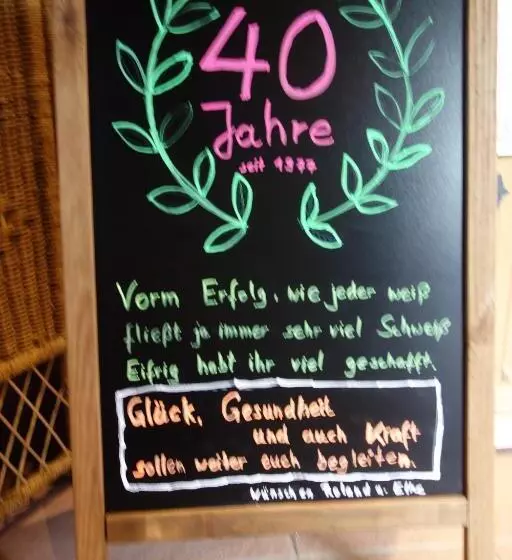 40
Jahre
seit 1977
Vorm Erfolg, wie jeder weiß
fließt ja immer sehr viel Schweiß
Eifrig habt ihr viel geschafft.
Glück, Gesundheit
und auch Kraft
sollen weiter euch begleiten.
wünschen Roland u. Elke